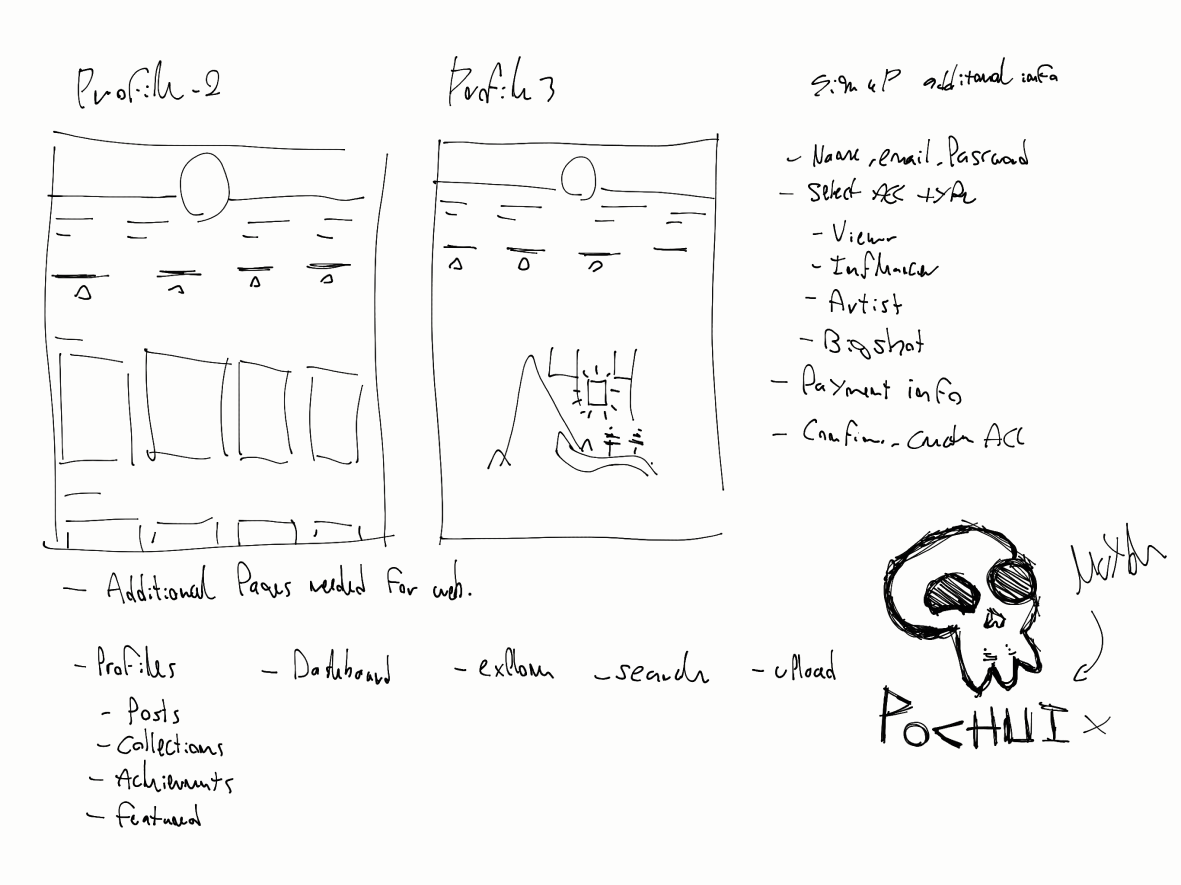 Profile-2
Profile 3
Sign uP additonal info
- Name, email, Password
- Select ACC tyPe
- Viewer
- Influencer
- Artist
- Bigshot
- Payment info
- Confirm. Create ACC
- Additional Pages needed for web.
- Profiles
- Posts
- Collections
- Achievments
- featured
- Dashboard
- explore
- search
- upload
POCHUI x